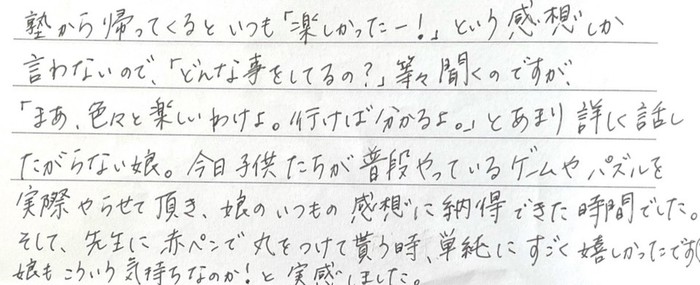 塾から帰ってくるといつも「楽しかったー!」という感想しか
言わないので、「どんな事をしてるの?」等々聞くのですが、
「まあ、色々と楽しいわけよ。行けば分かるよ。」とあまり詳しく話し
たがらない娘。今日子供たちが普段やっているゲームやパズルを
実際やらせて頂き、娘のいつもの感想に納得できた時間でした。
そして、先生に赤ペンで丸をつけて貰う時、単純にすごく嬉しかったです(
娘もこういう気持ちなのか!と実感しました。